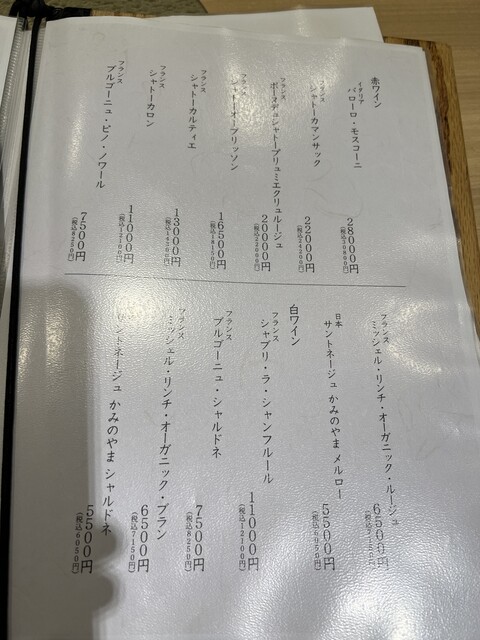 赤ワイン
イタリア
バローロ・モスコーニ
28000円
(税込30800円)
フランス
シャトーカマンサック
22000円
(税込24200円)
フランス
ボーヌデュシャトープリュミエクリュルージュ
20000円
(税込22000円)
フランス
シャトーオーブリッソン
16500円
(税込18150円)
フランス
シャトーカルティエ
13000円
(税込14300円)
フランス
シャトーカロン
11000円
(税込12100円)
フランス
ブルゴーニュ・ピノ・ノワール
7500円
(税込8250円)
フランス
ミッシェル・リンチ・オーガニック・ルージュ
6500円
(税込7150円)
日本
サントネージュ かみのやま メルロー
5500円
(税込6050円)
白ワイン
フランス
シャブリ・ラ・シャンフルール
11000円
(税込12100円)
フランス
ブルゴーニュ・シャルドネ
7500円
(税込8250円)
フランス
ミッシェル・リンチ・オーガニック・ブラン
6500円
(税込7150円)
サントネージュ かみのやま シャルドネ
5500円
(税込6050円)